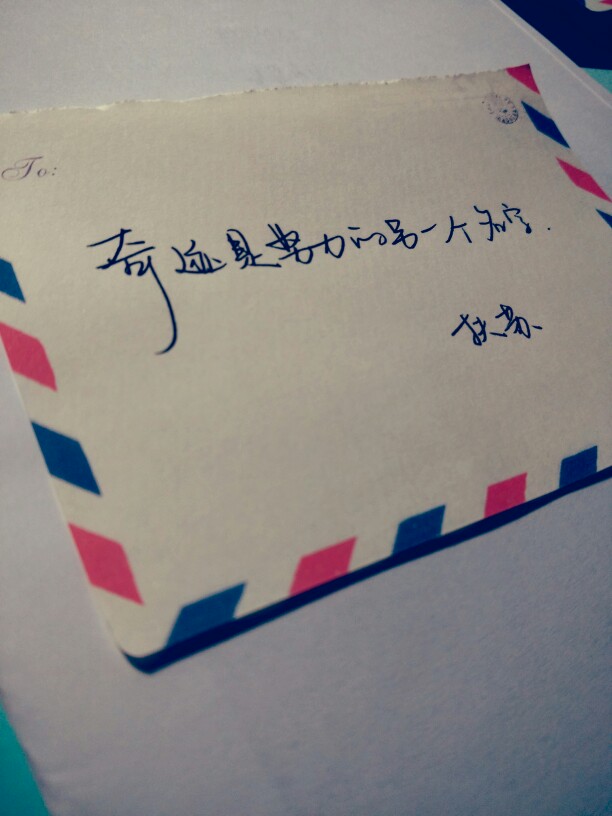 To:
奇迹是努力的另一个名字.
扶苏